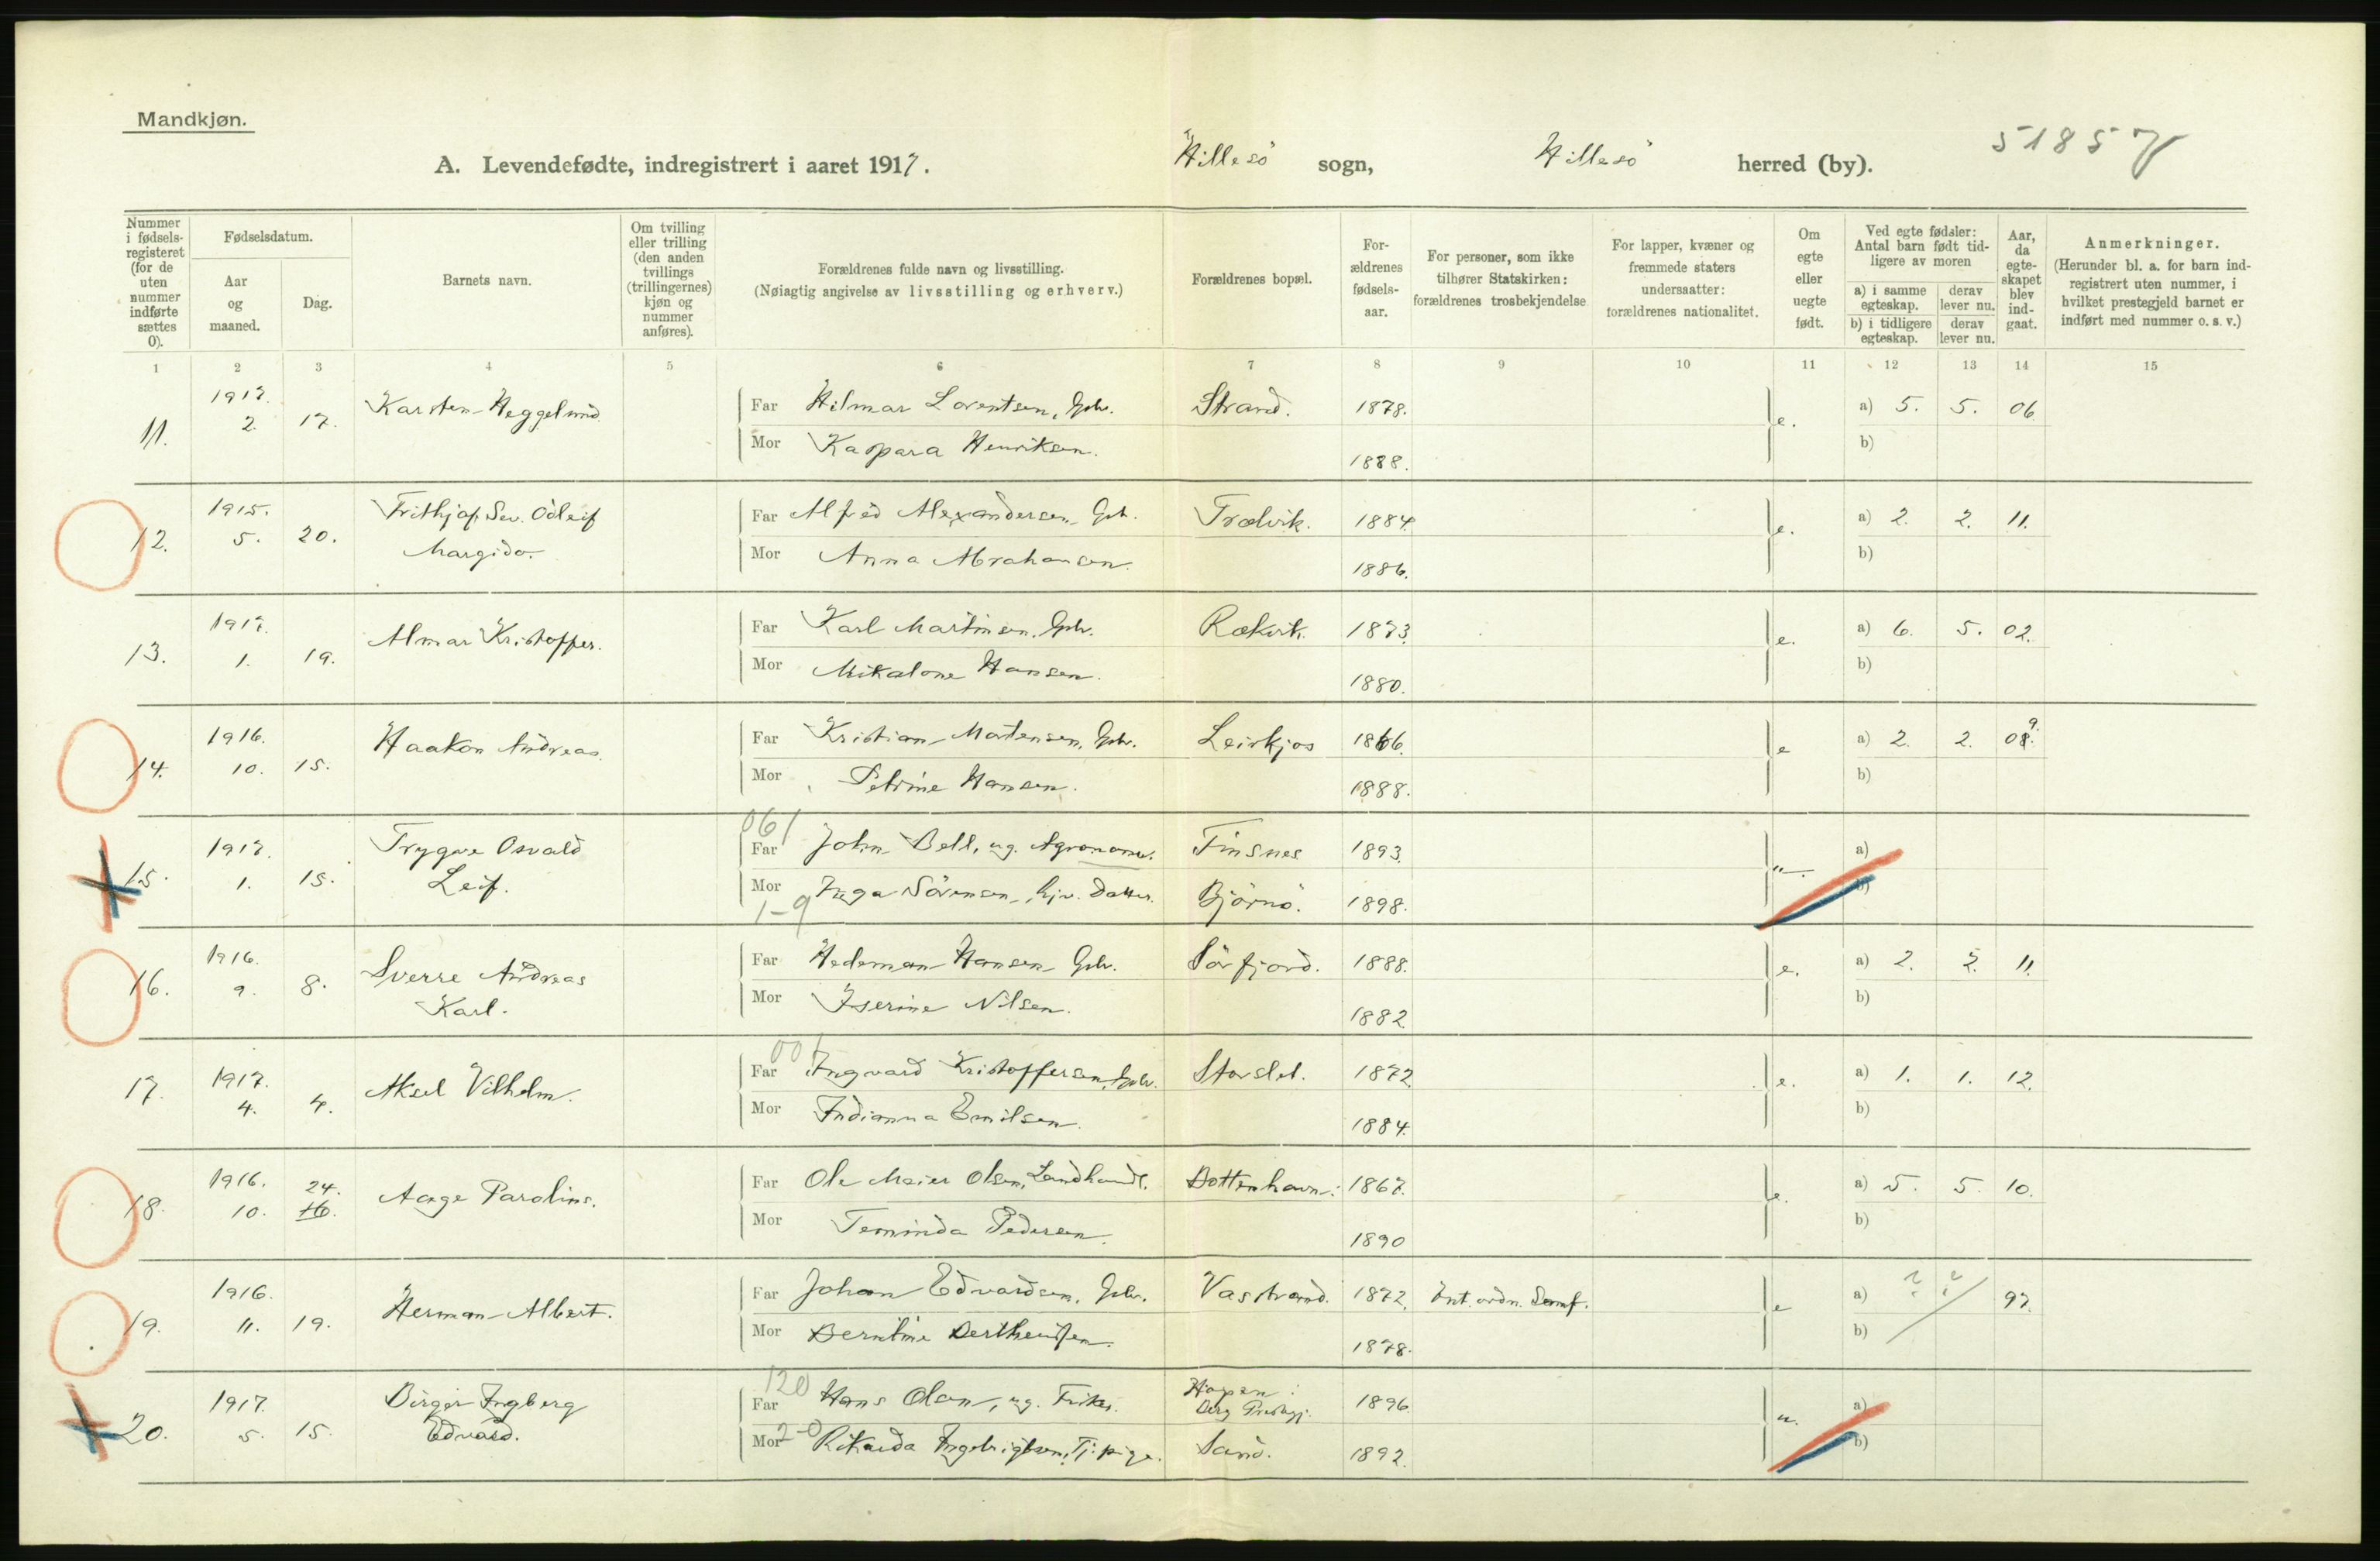 Mandkjøn.
A. Levendefødte, indregistrert i aaret 1917. Hillesö sogn, Hillesö herred (by). 51857
Nummer i fødselsregisteret (for de uten nummer indførte sættes 0).
Fødselsdatum.
Aar og maaned.
Dag.
Barnets navn.
Om tvilling eller trilling (den anden tvillings (trillingernes) kjøn og nummer anføres).
Forældrenes fulde navn og livsstilling.
(Nøiagtig angivelse av livsstilling og erhverv.)
Forældrenes bopæl.
Forældrenes fødselsaar.
For personer, som ikke tilhører Statskirken: forældrenes trosbekjendelse
For lapper, kvæner og fremmede staters undersaatter: forældrenes nationalitet.
Om egte eller uegte født.
Ved egte fødsler: Antal barn født tidligere av moren
a) i samme egteskap. derav lever nu.
b) i tidligere egteskap. derav lever nu.
Aar, da egteskapet blev indgaat.
Anmerkninger.
(Herunder bl. a. for barn indregistrert uten nummer, i hvilket prestegjeld barnet er indført med nummer o. s. v.)
1 2 3 4 5 6 7 8 9 10 11 12 13 14 15
11. 1917. 2. 17. Karsten Heggelund Far Hilmar Lorentsen, Gbr. Strand. 1878. e. a) 5. 5. 06
Mor Kaspara Henriksen. 1888. b)
12. 1915. 5. 20. Frithjof Sev. Odleif Far Alfred Alexandersen, Gbr. Trælvik. 1884. e. a) 2. 2. 11.
Margido. Mor Anna Abrahamsen. 1886. b)
13. 1917. 1. 19. Almar Kristoffer. Far Karl Martinsen, Gbr. Rækvik. 1873. e. a) 6. 5. 02.
Mor Mikalone Hansen. 1880. b)
14. 1916. 10. 15. Haakon Andreas. Far Kristian Mortensen, Gbr. Leirkjos 1866. e a) 2. 2. 08. 9.
Mor Petrine Hansen. 1888. b)
061
15. 1917. 1. 15. Trygve Osvald Far John Bell, ug. Agronom. Finsnes 1893. u. a)
Leif. Mor Inga Sörensen, hjv. datter. Björnö. 1898. b)
1-9
16. 1916. 9. 8. Sverre Andreas Far Hedeman Hansen Gbr. Sörfjord. 1888. e. a) 2. 2. 11.
Karl. Mor Iserine Nilsen. 1882 b)
001
17. 1917. 4. 4. Aksel Vilhelm. Far Ingvard Kristoffersen, Gbr. Storslet. 1872 e. a) 1. 1. 12.
Mor Indianna Emilsen. 1884. b)
18. 1916. 10. 24. 16. Aage Parolins. Far Ole Meier Olsen, Landhandl. Bottenhavn: 1867. e. a) 5. 5. 10.
Mor Teminda Pedersen. 1890 b)
19. 1916. 11. 19. Herman Albert. Far Johan Edvardsen, Gbr. Vasstrand. 1872. Int. ordn. Samf. e a) ? ? 97.
Mor Berntine Bertheussen. 1878. b)
120
20. 1917. 5. 15. Birger Ingberg Far Hans Olsen, ug. Fisker. 1896. u. a)
Edvard. Mor 2-0 Rikarda Ingebrigtsen, Tj. pige. Sand. 1892. b)